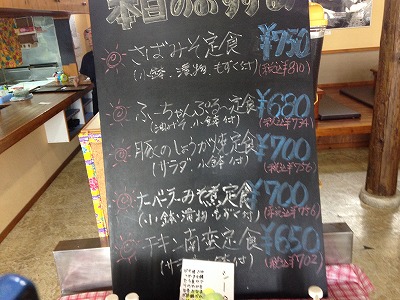 本日のおすすめ
さばみそ定食 ¥750
(小鉢、漬物、もずく付) (税込¥810)
ふーちゃんぷるー定食 ¥680
小鉢付) (税込¥734)
豚のしょうが焼定食 ¥700
(サラダ、小鉢付) (税込¥756)
ナーベラーみそ煮定食 ¥700
(小鉢、漬物、もずく付) (税込¥756)
チキン南蛮定食 ¥650
付) (税込¥702)